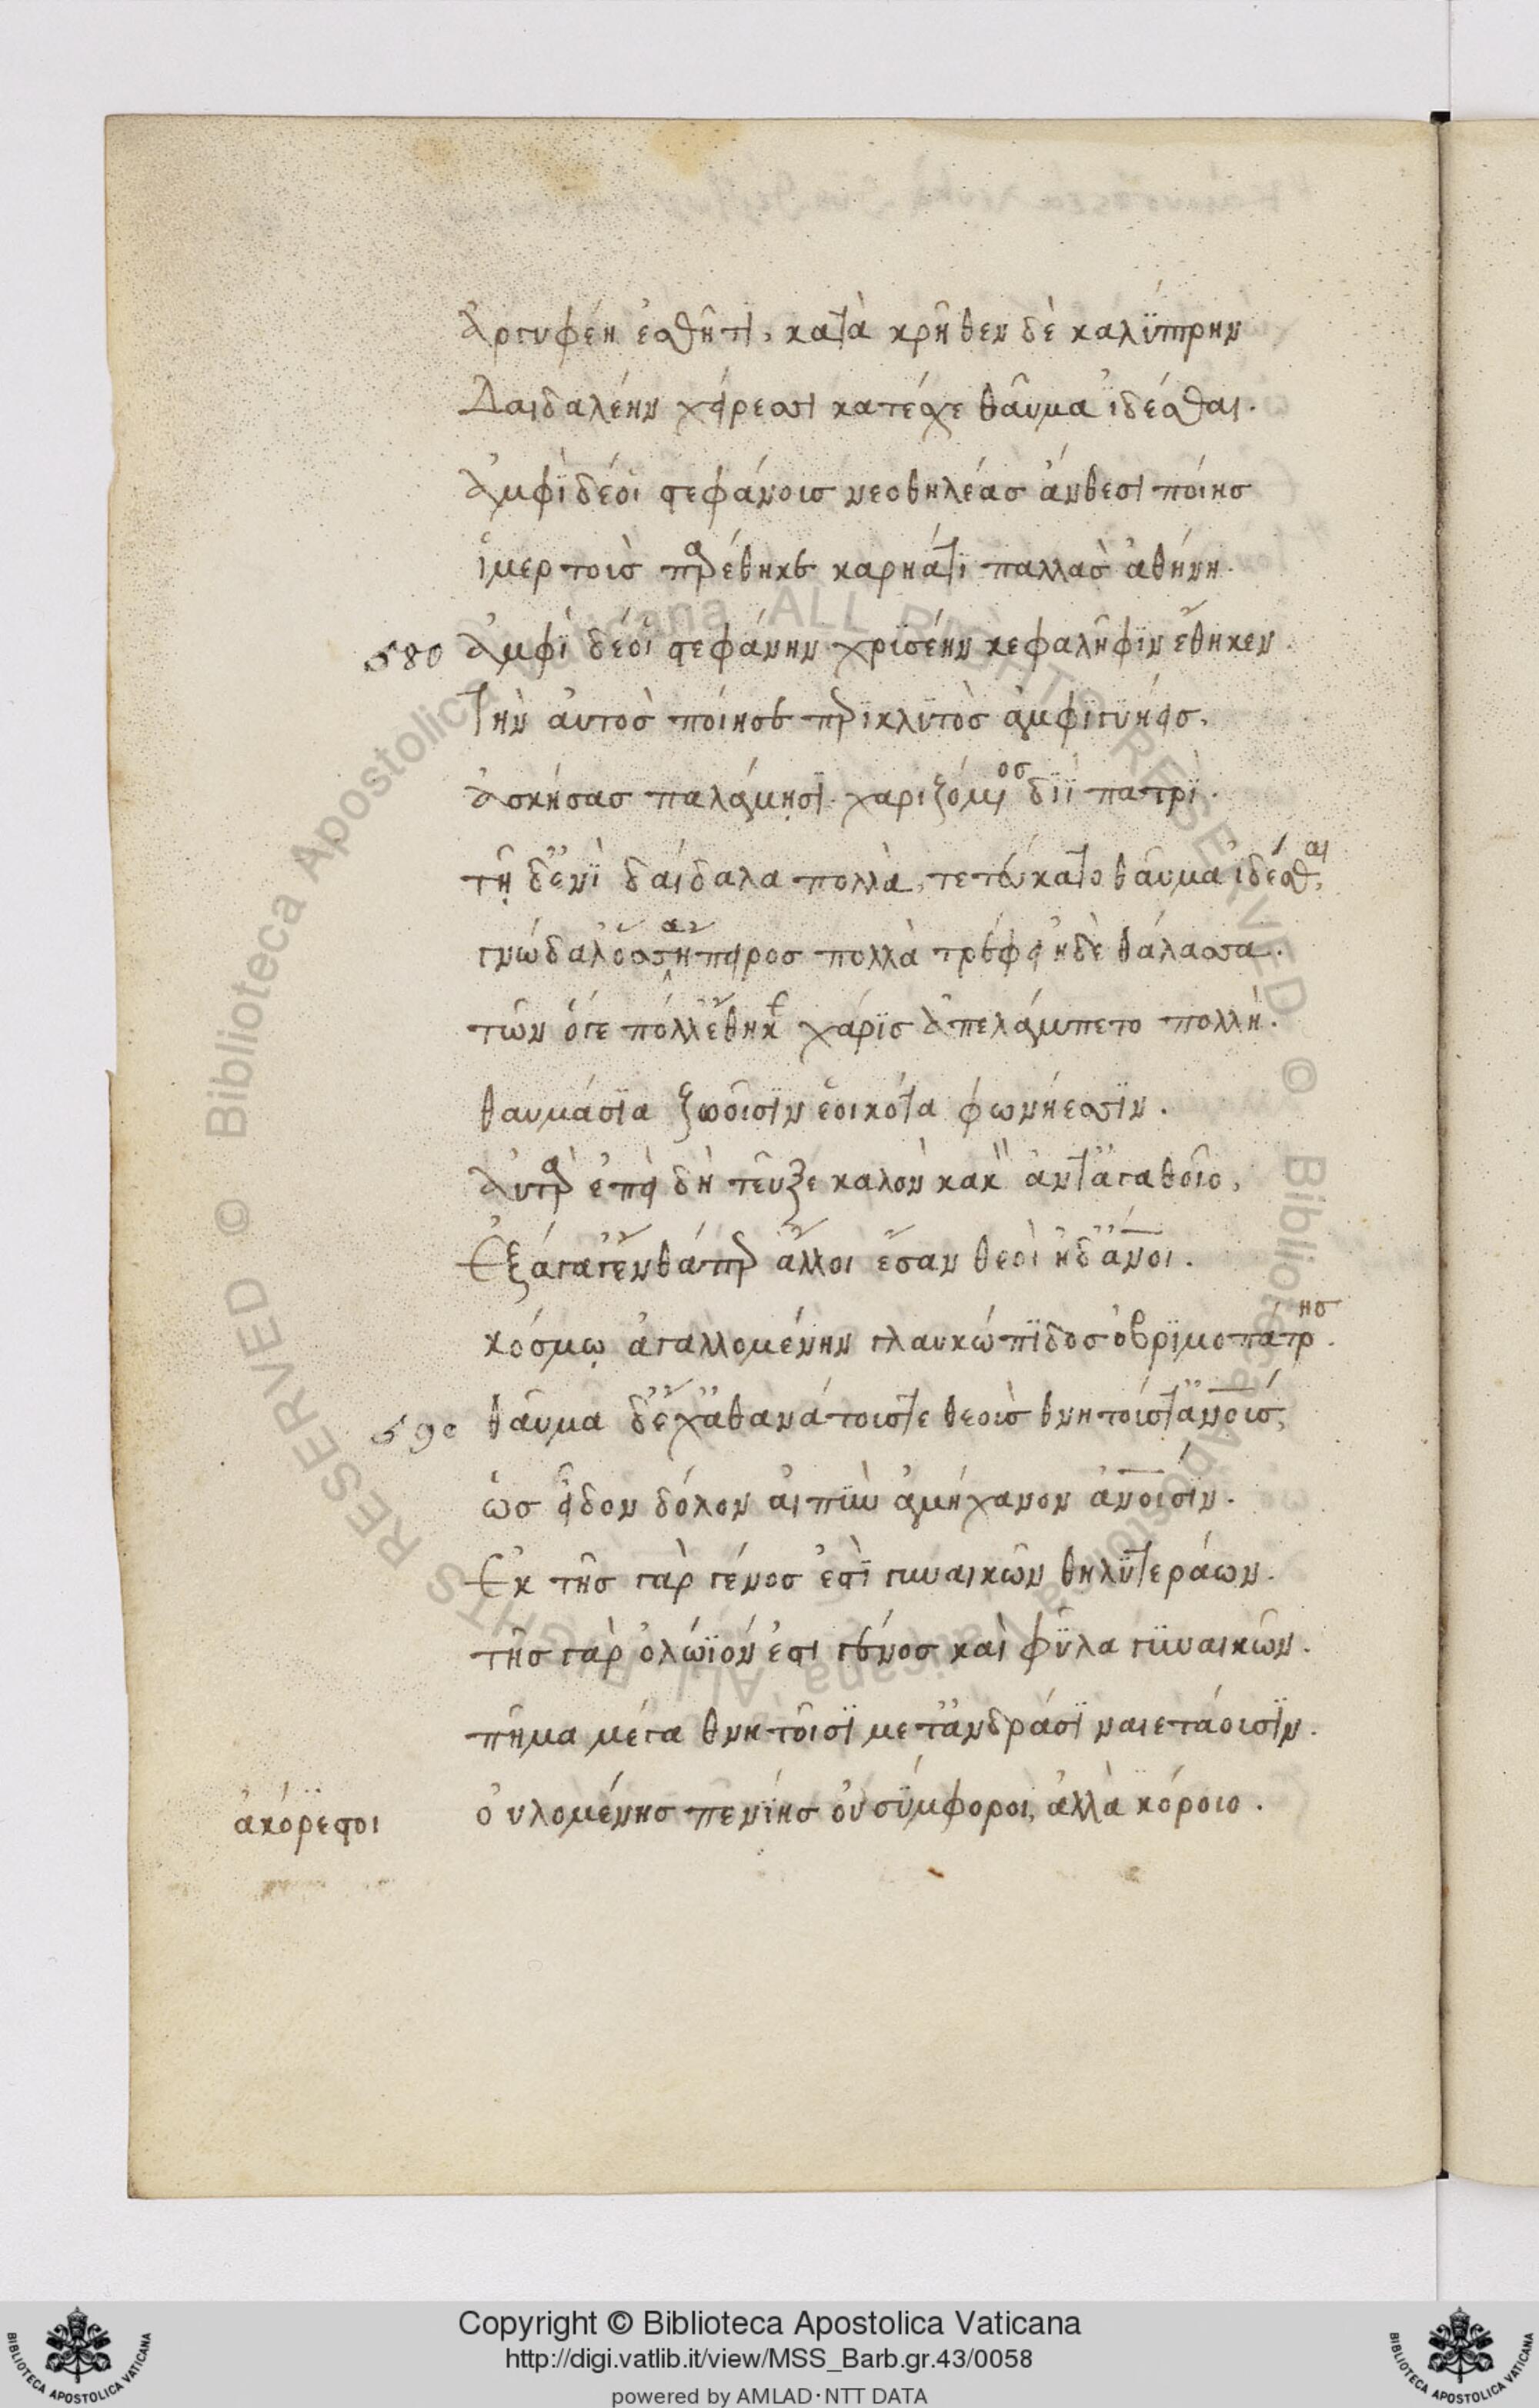 ἀργυφέη ἐσθῆτι, κατὰ κρῆθεν δὲ καλύπτρην
Δαιδαλέην χείρεσσι κατέσχε θαῦμα ἰδέσθαι.
ἀμφὶ δέ οἱ στεφάνοισ νεοθηλέασ ἄνθεσι ποίησ
ἱμερτοῖσ παρέθηκε καρήατι παλλὰσ ἀθήνη.
580 ἀμφὶ δέ οἱ στεφάνην χρϊσέην κεφαλῆφιν ἔθηκεν.
Τὴν αὐτὸσ ποίησε περικλυτὸσ ἀμφιγυήεισ,
ἀσκήσασ παλάμῃσι. χαριζόμενοσ διῒ πατρὶ.
τῇ δ' ἐνὶ δαίδαλα πολλὰ, τετεύχατο θαῦμα ἰδέσθαι,
κνώδαλ' ὅσσ' ἤπειροσ πολλὰ τρέφει ἠδὲ θάλασσα.
τῶν ὅγε πόλλ' ἔθηκε χάρισ ἀπελάμπετο πολλή.
θαυμάσια ζωοῖσιν ἐοικότα φωνήεσσιν.
αὐτὰρ ἐπεὶ δὴ τεῦξε καλὸν κακ' ἀντ' ἀγαθοῖο,
Ἐξάγαγ' ἔνθάπερ ἄλλοι ἔσαν θεοὶ ἠδ' ἄνοι.
κόσμῳ ἀγαλλομένην γλαυκώπϊδοσ ὀβρϊμοπάτρησ.
590 θαῦμα δ' ἔχ' ἀθανάτουσ τε θεοὺσ θνητούσ τ' ἀνουσ,
ὡσ εἶδον δόλον αἰπὺν ἀμήχανον ἀνοισιν.
Ἐκ τῆσ γὰρ γένοσ ἐστὶ γυναικῶν θηλυτεράων.
τῆσ γὰρ ὀλώϊόν ἐστι γένοσ καὶ φῦλα γυναικῶν.
πῆμα μέγα θνητοῖσι μετ' ἀνδράσι ναιετάουσιν.
ἀκόρεστοι οὐλομένησ πενίησ οὐ σύμφοροι, ἀλλὰ κόροιο.
© Biblioteca Apostolica Vaticana ALL RIGHTS RESERVED © Biblioteca Apostolica Vaticana ALL RIGHTS RESERVED
BIBLIOTECA APOSTOLICA VATICANA
Copyright © Biblioteca Apostolica Vaticana
http://digi.vatlib.it/view/MSS_Barb.gr.43/0058
powered by AMLAD·NTT DATA
BIBLIOTECA APOSTOLICA VATICANA